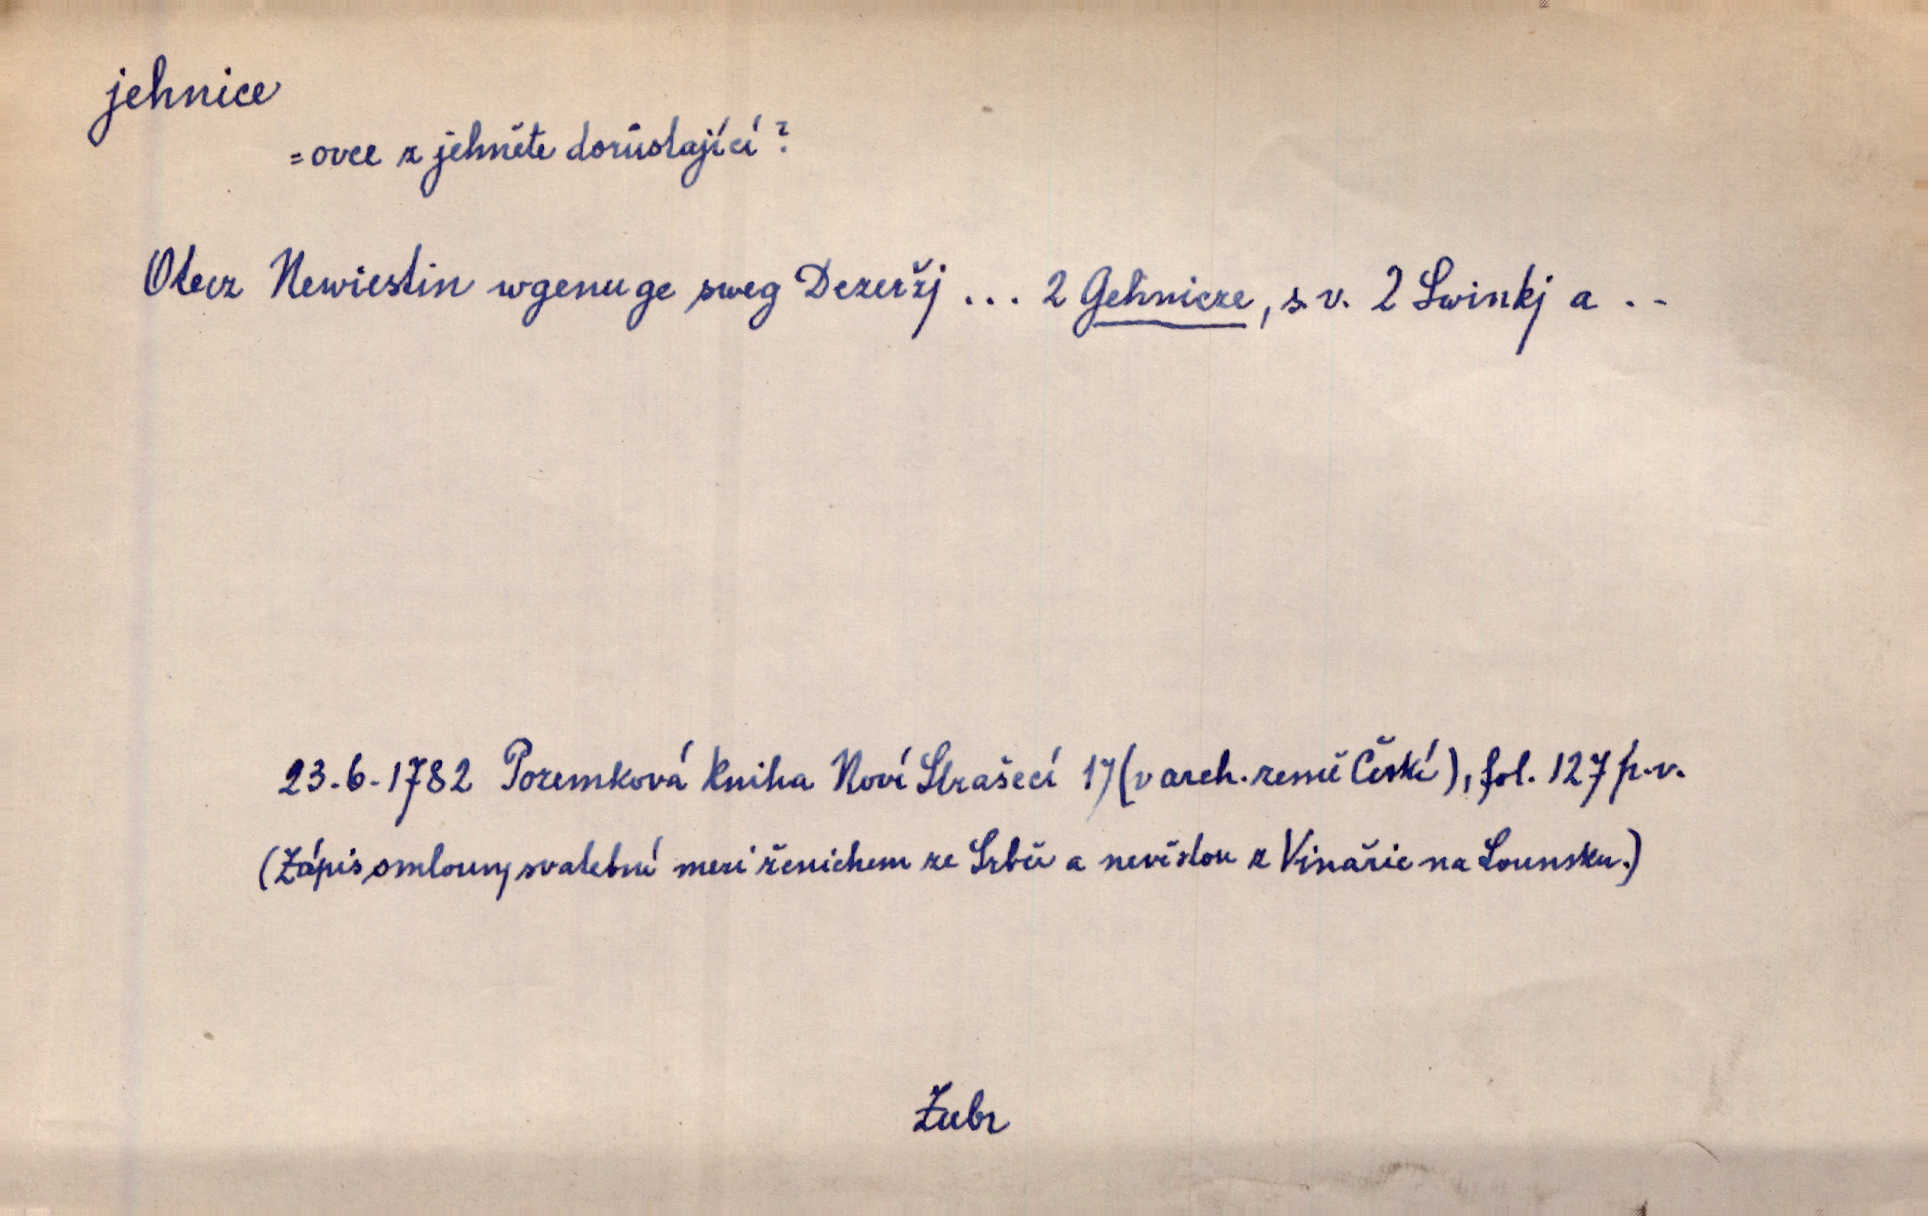 jehnice
= ovce z jehněte dorůstající?
Otecz Newiestin wgenuge sweg Dezeržj ... 2 Gehnicze, s. v. 2 Swinkj a . .
23.6.1782 Pozemková kniha Nové Strašecí 17 (v arch. země České), fol. 127 p. v.
(Zápis smlouvy svatební mezi ženichem ze Srbče a nevěstou z Vinařic na Lounsku.)
Zubr